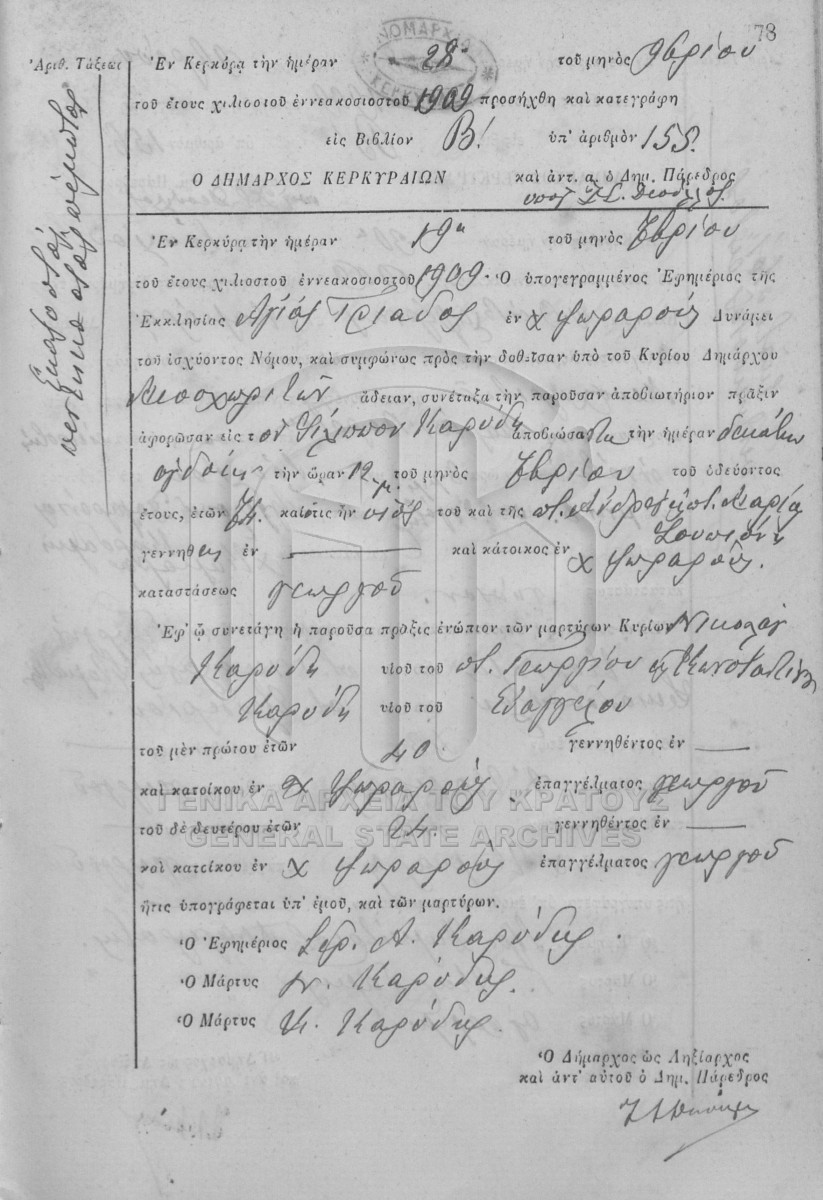 78
Ἀριθ. Τάξεως
Ἑκατοστὸν
πεντηκοστὸν πέμπτον
Ἐν Κερκύρᾳ τὴν ἡμέραν 28 τοῦ μηνὸς 9βρίου
τοῦ ἔτους χιλιοστοῦ ἐννεακοσιοστοῦ 1909 προσήχθη καὶ κατεγράφη
εἰς Βιβλίον Β! ὑπ' ἀριθμὸν 155.
Ο ΔΗΜΑΡΧΟΣ ΚΕΡΚΥΡΑΙΩΝ καὶ ἀντ. α. ὁ Δημ. Πάρεδρος
Ἐν Κερκύρᾳ τὴν ἡμέραν 19η τοῦ μηνὸς
τοῦ ἔτους χιλιοστοῦ ἐννεακοσιοστοῦ 1909. Ὁ ὑπογεγραμμένος Ἐφημέριος τῆς
Ἐκκλησίας Ἁγίας Τριάδος ἐν χ Ψωραροῖς Δυνάμει
τοῦ ἰσχύοντος Νόμου, καὶ συμφώνως πρὸς τὴν δοθεῖσαν ὑπὸ τοῦ Κυρίου Δημάρχου
ἄδειαν, συνέταξα τὴν παροῦσαν ἀποβιωτήριον πρᾶξιν
ἀφορῶσαν εἰς τὸν Φίλιππον Καρύδη ἀποβιώσαντα τὴν ἡμέραν δεκάτην
ὀγδόην τὴν ὥραν 12 μ. τοῦ μηνὸς τοῦ ὁδεύοντος
ἔτους, ἐτῶν καὶ ὅτις ἦν υἱὸς τοῦ καὶ τῆς π. Ἀνδρέα π. Μαρία
γεννηθεὶς ἐν — καὶ κάτοικος ἐν χ Ψωραροῖς.
καταστάσεως γεωργοῦ
Ἐφ' ᾧ συνετάγη ἡ παροῦσα πρᾶξις ἐνώπιον τῶν μαρτύρων Κυρίων Νικολάου
Καρύδη υἱοῦ τοῦ π. Γεωργίου κ Κωνσταντίνου
Καρύδη υἱοῦ τοῦ Εὐαγγέλου
τοῦ μὲν πρώτου ἐτῶν 40 γεννηθέντος ἐν —
καὶ κατοίκου ἐν χ Ψωραροῖς ἐπαγγέλματος γεωργοῦ
τοῦ δὲ δευτέρου ἐτῶν 24 γεννηθέντος ἐν —
καὶ κατοίκου ἐν χ Ψωραροῖς ἐπαγγέλματος γεωργοῦ
ἥτις ὑπογράφεται ὑπ' ἐμοῦ, καὶ τῶν μαρτύρων.
Ὁ Ἐφημέριος Σπ. Α. Καρύδης.
Ὁ Μάρτυς Ν. Καρύδης.
Ὁ Μάρτυς Κ. Καρύδης.
Ὁ Δήμαρχος ὡς Ληξίαρχος
καὶ ἀντ' αὐτοῦ ὁ Δημ. Πάρεδρος
ΓΕΝΙΚΑ ΑΡΧΕΙΑ ΤΟΥ ΚΡΑΤΟΥΣ
GENERAL STATE ARCHIVES